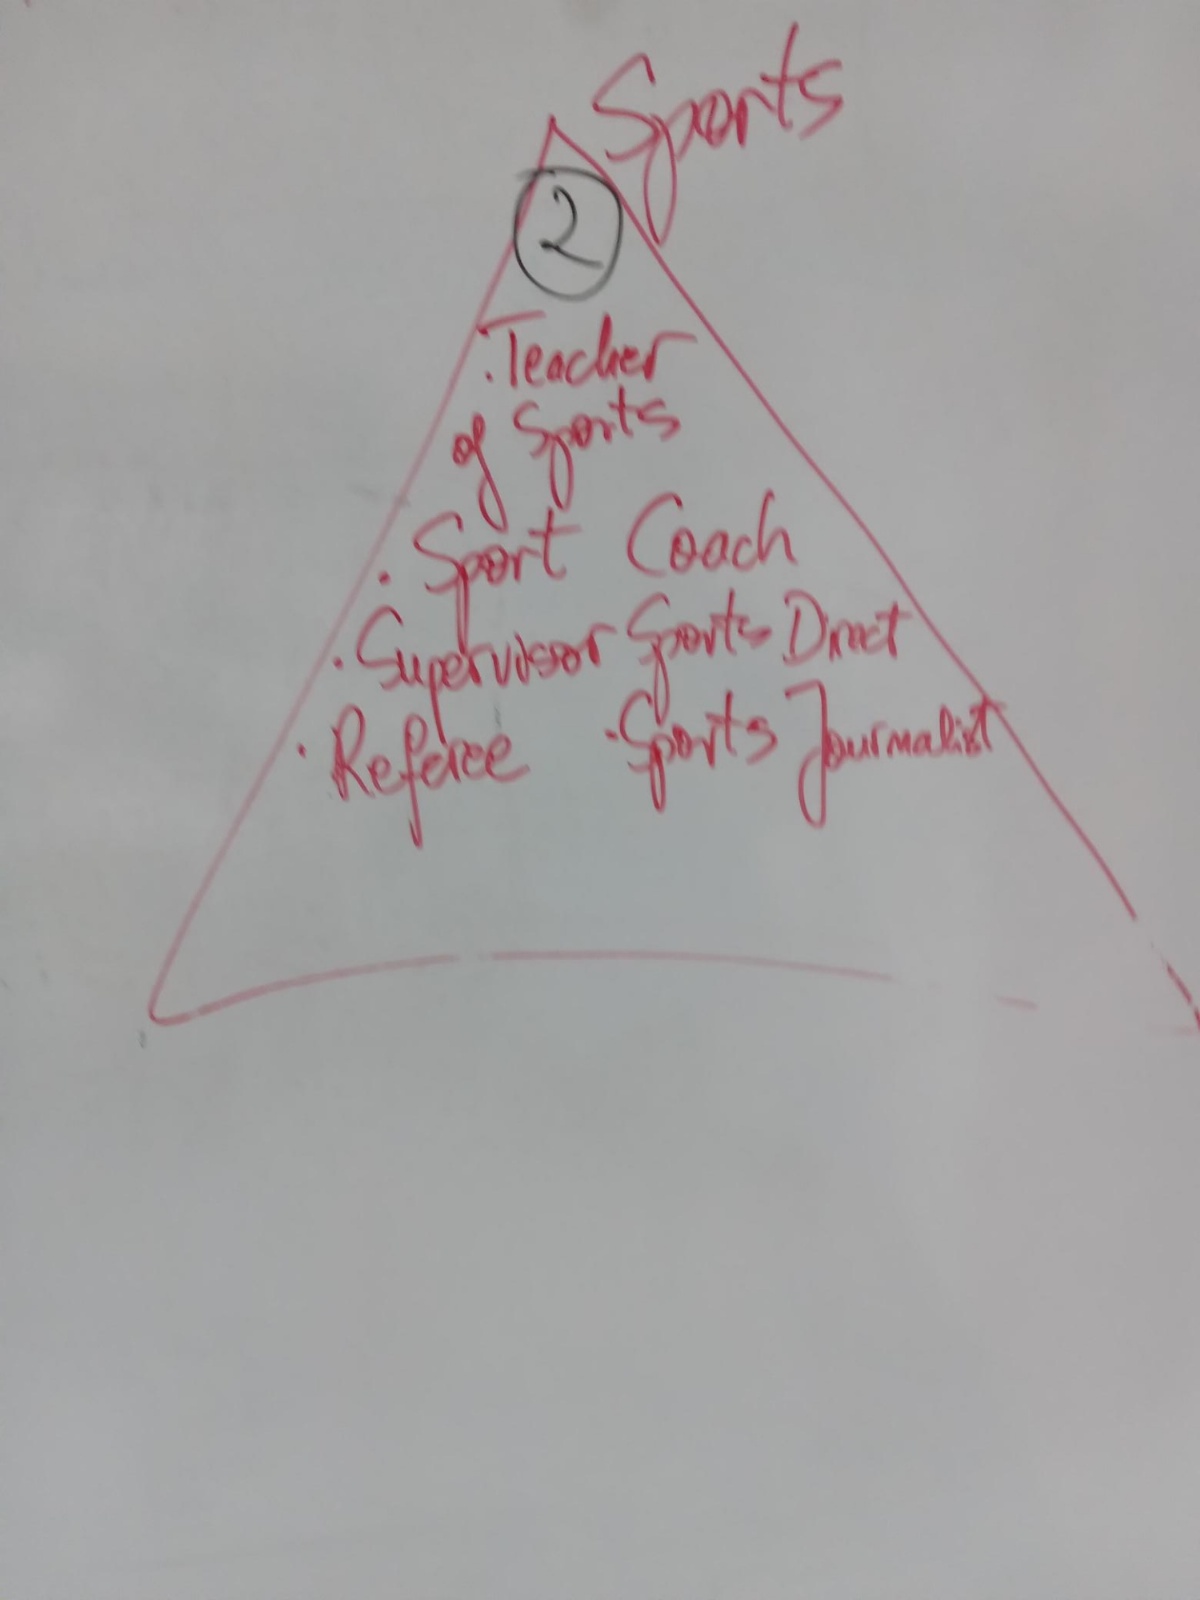 Sports
2
.Teacher
of Sports
. Sport Coach
. Supervisor Sports Direct
. Referee .Sports Journalist